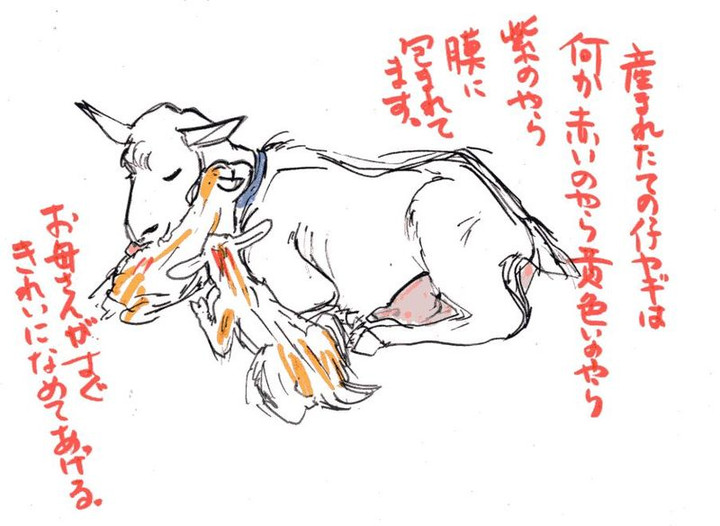 産まれたての仔ヤギは
何か赤いのやら黄色いのやら
紫のやら
膜に
包まれて
ます。
お母さんがすぐ
きれいになめてあげる。